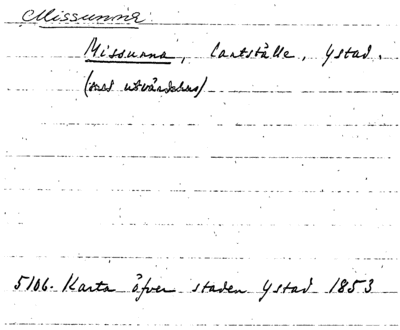 Missunna
Missunna, lantställe, Ystad.
(med utvärdshus)
5106. Karta öfver staden Ystad 1853